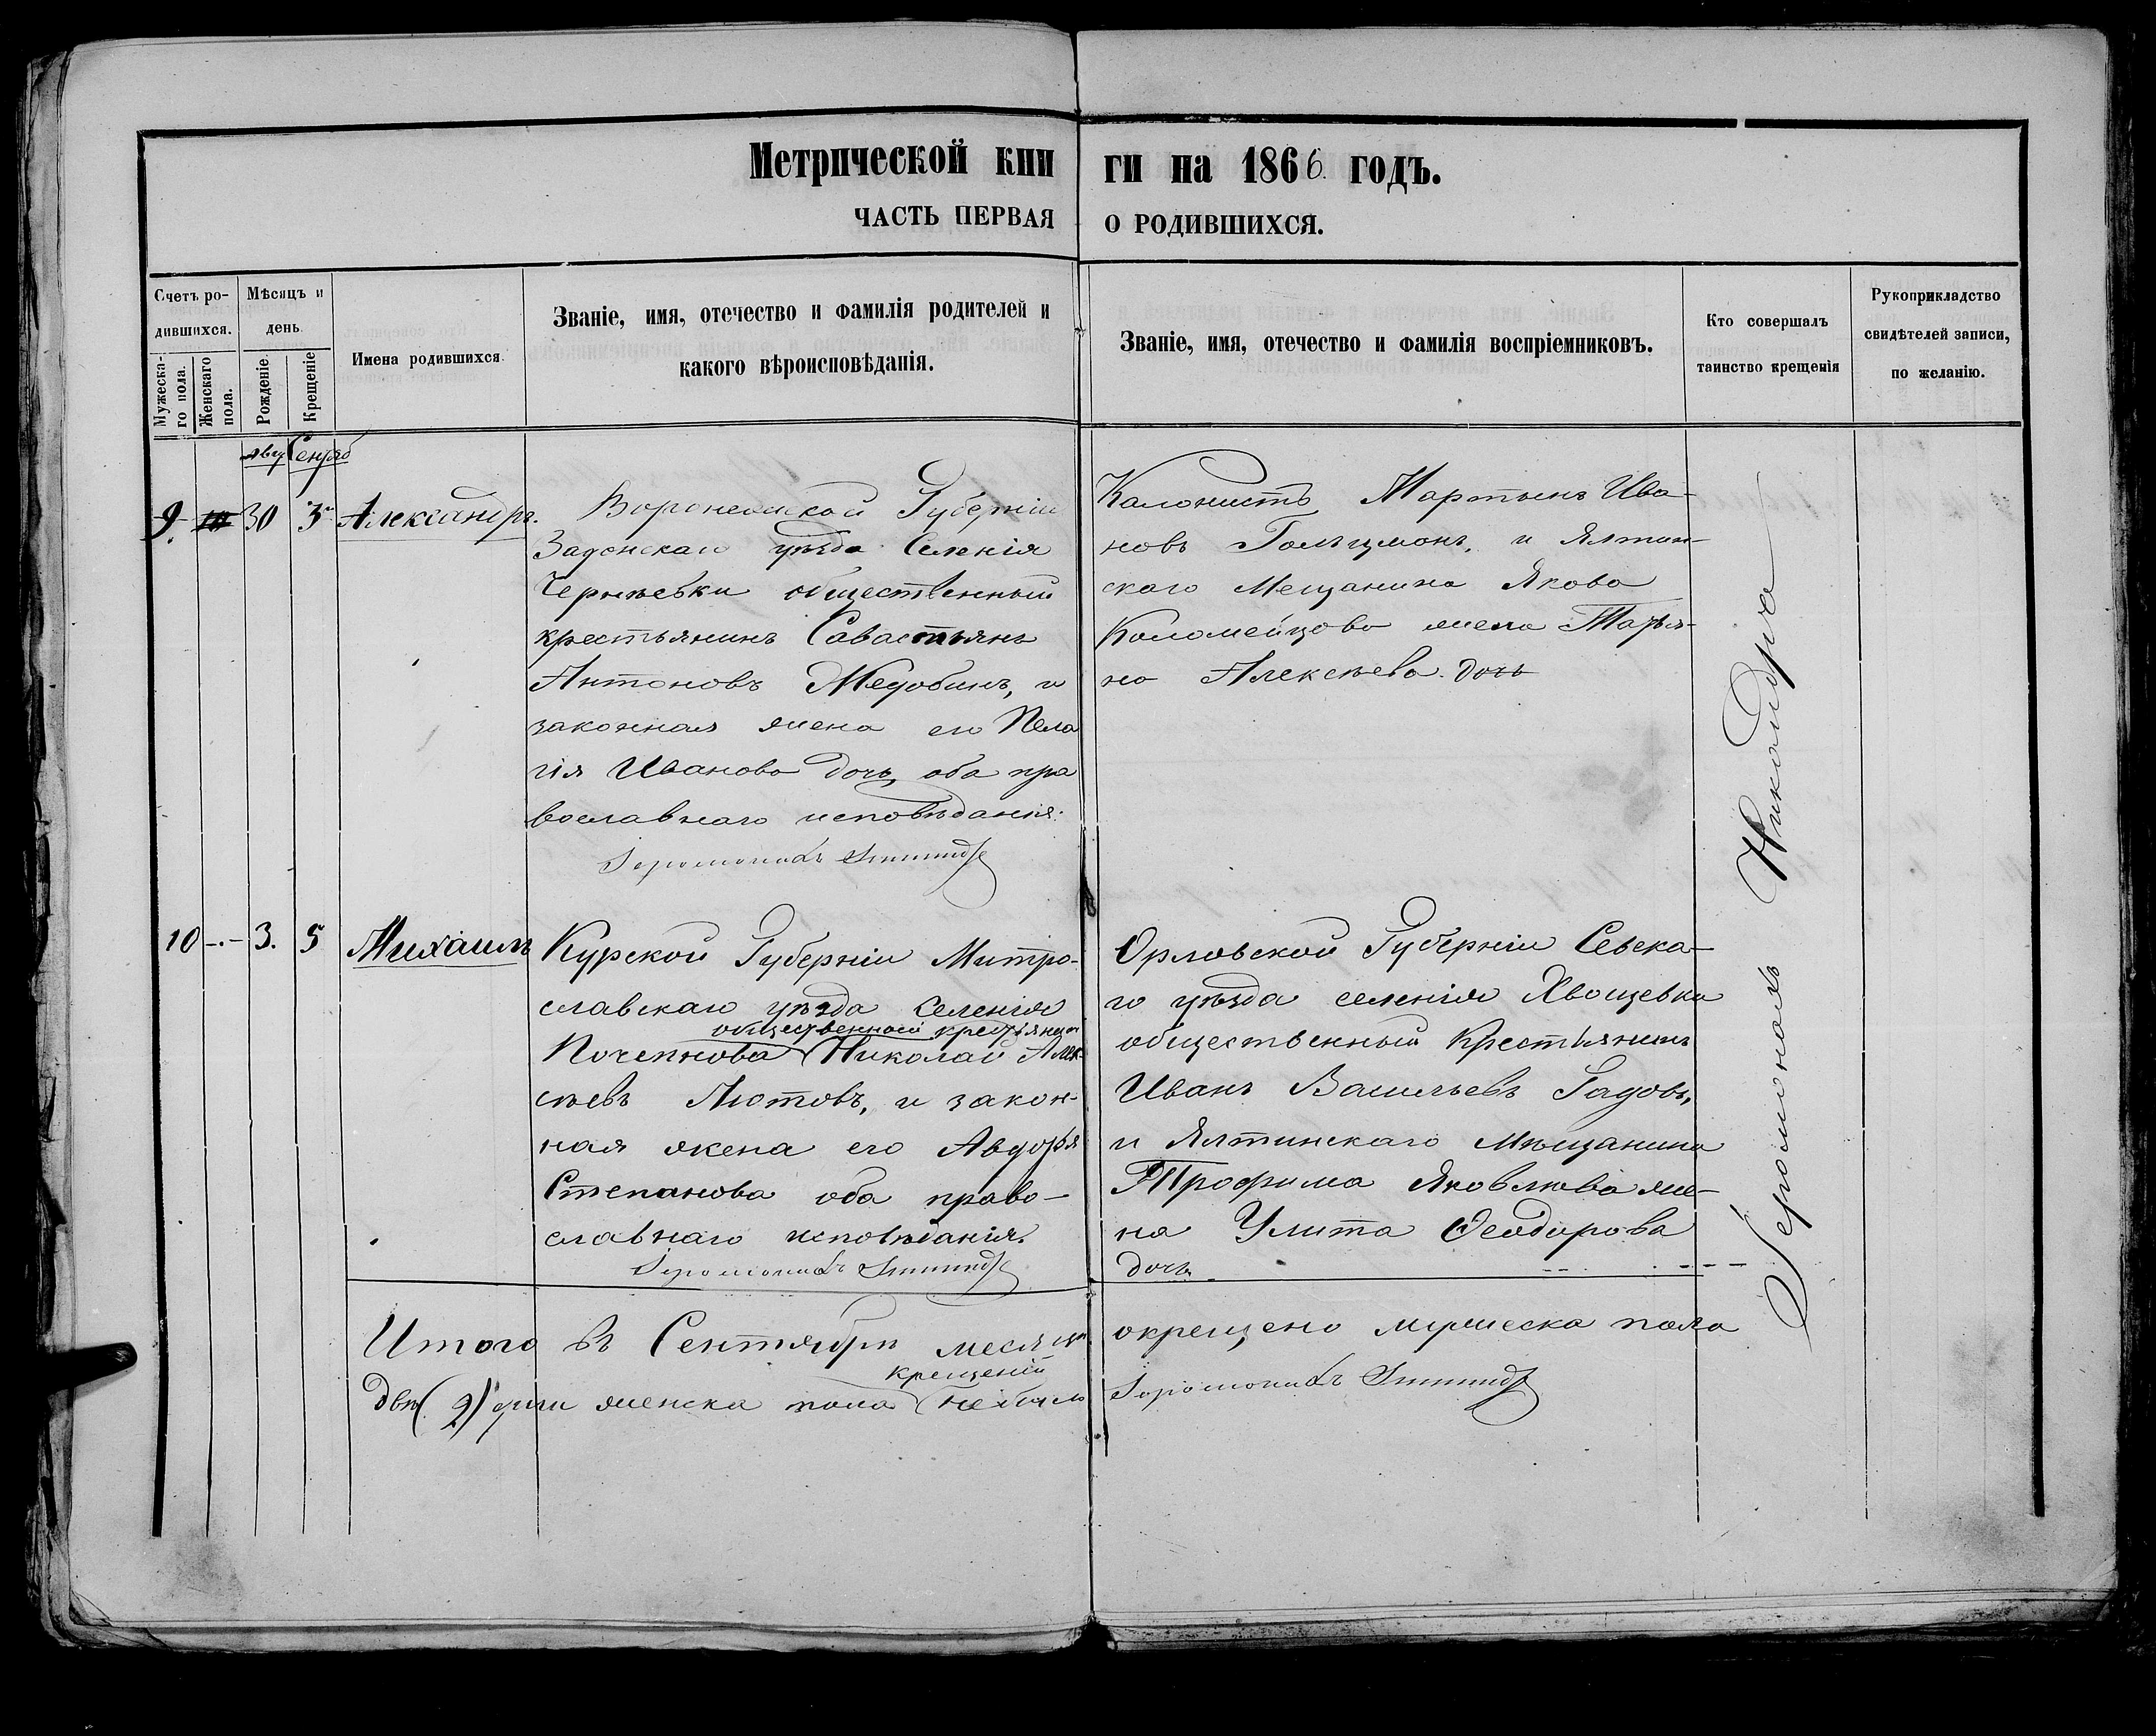 Метрической кни ги на 1866 годъ.
ЧАСТЬ ПЕРВАЯ О РОДИВШИХСЯ.
Счетъ ро-
дившихся.
Мужеска-
го пола.
Женскаго
пола.
Мѣсяцъ и
день.
Рожденіе.
Крещеніе
Имена родившихся.
Званіе, имя, отечество и фамилія родителей и
какого вѣроисповѣданія.
Званіе, имя, отечество и фамилія воспріемниковъ.
Кто совершалъ
таинство крещенія
Рукоприкладство
свидѣтелей записи,
по желанію.
Авг Сентяб
9. 30 3 Александръ.
Воронежской Губерніи
Задонскаго уѣзда Селенія
общественный
крестьянинъ Савастьянъ
Антоновъ и
законная жена его Пела
гія Иванова дочь, оба пра
вославнаго исповѣданія.
Іеромонахъ
Колонистъ Мартынъ Ива-
новъ Гольцмонъ, и Ялтин-
скаго Мещанина Якова
Коломейцова жена Татья-
на Алексѣева дочь
10 -.- 3. 5 Михаилъ
Курской Губерніи Митро-
славскаго уѣзда Селенія
общественный крестьянин
Почепкова Николай Алек-
сѣевъ Лютовъ, и закон-
ная жена его Авдотья
Степанова оба право-
славнаго исповѣданія.
Іеромонахъ
Орловской Губерніи Севска-
го уѣзда селенія Хвощевки
общественный Крестьянинъ
Иванъ Васильевъ Гадовъ,
и Ялтинскаго Мѣщанина
Трофима Яковлюва же-
на Улита Феодорова
дочь
Іеромонахъ Никандра
Итого въ Сентябрѣ месяцѣ окрещено мужеска пола
крещеній
двѣ (2) души женска пола небыло Іеромонахъ